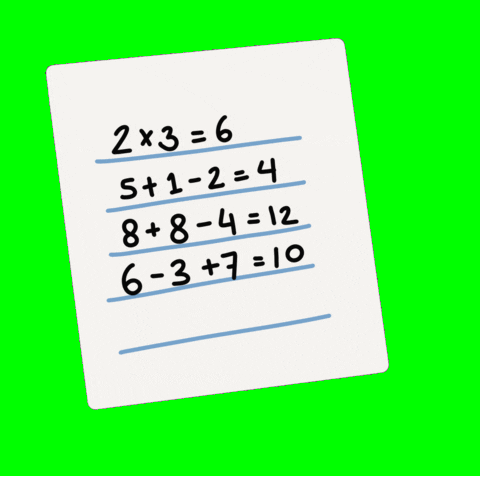 2 × 3 = 6
5 + 1 - 2 = 4
8 + 8 - 4 = 12
6 - 3 + 7 = 10